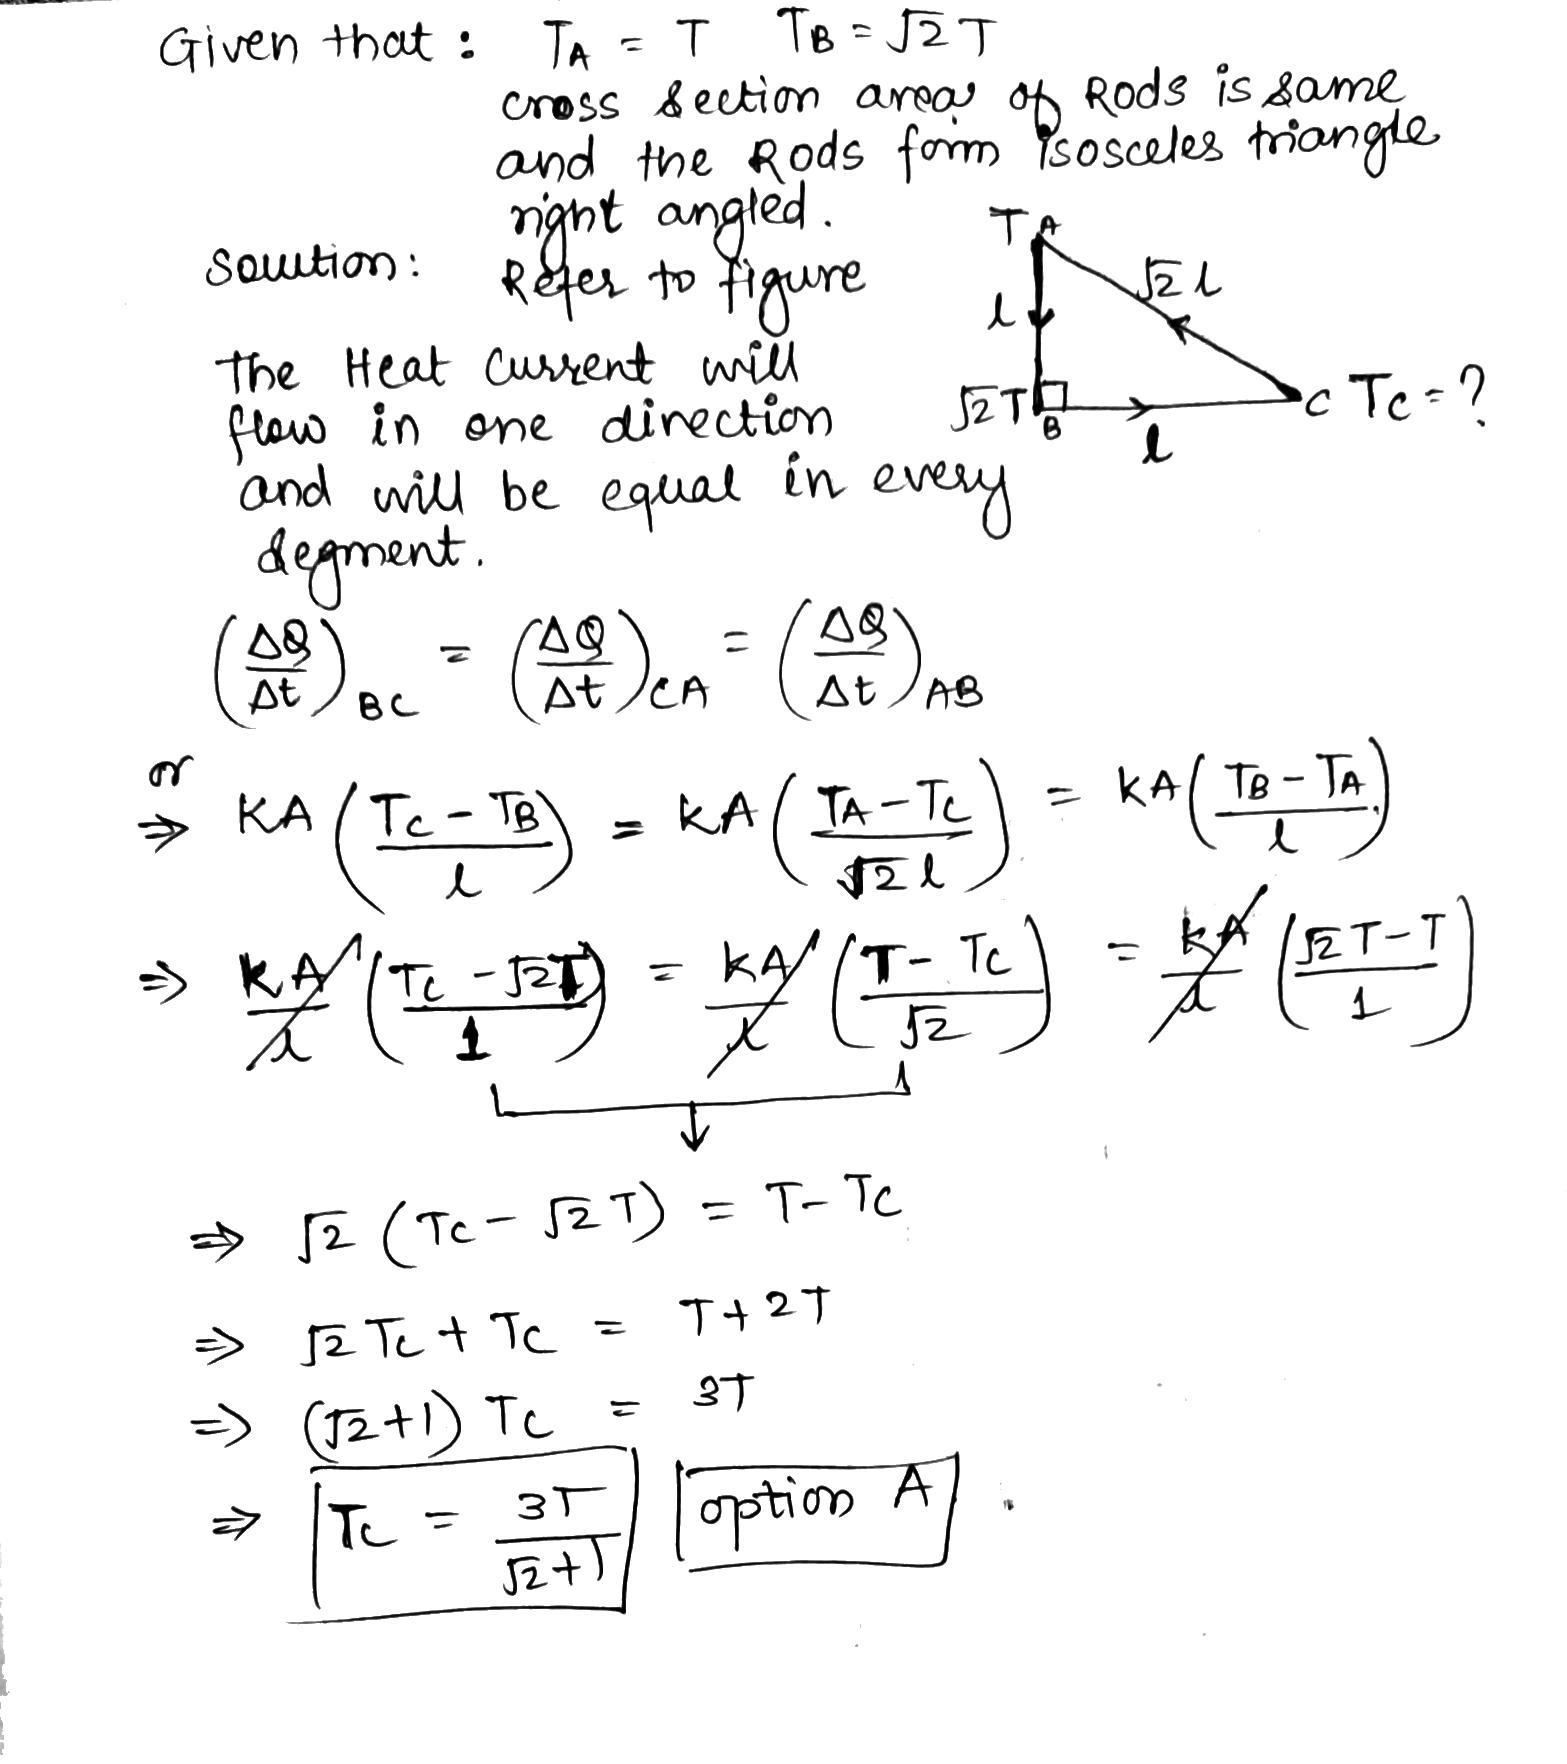 Given that : TA = T TB = √2 T
cross section area of Rods is same
and the Rods form isosceles triangle
right angled.
Solution: Refer to figure
T A
√2 l
l
√2 T B
l
C TC = ?
The Heat current will
flow in one direction
and will be equal in every
segment.
(ΔQ/Δt)BC = (ΔQ/Δt)CA = (ΔQ/Δt)AB
or
⇒ KA (TC - TB / l) = KA (TA - TC / √2 l) = KA (TB - TA / l)
⇒ KA/l (TC - √2T / 1) = KA/l (T - TC / √2) = KA/l (√2 T - T / 1)
⇒ √2 (TC - √2 T) = T - TC
⇒ √2 TC + TC = T + 2T
⇒ (√2+1) TC = 3T
⇒ TC = 3T / √2+1 option A